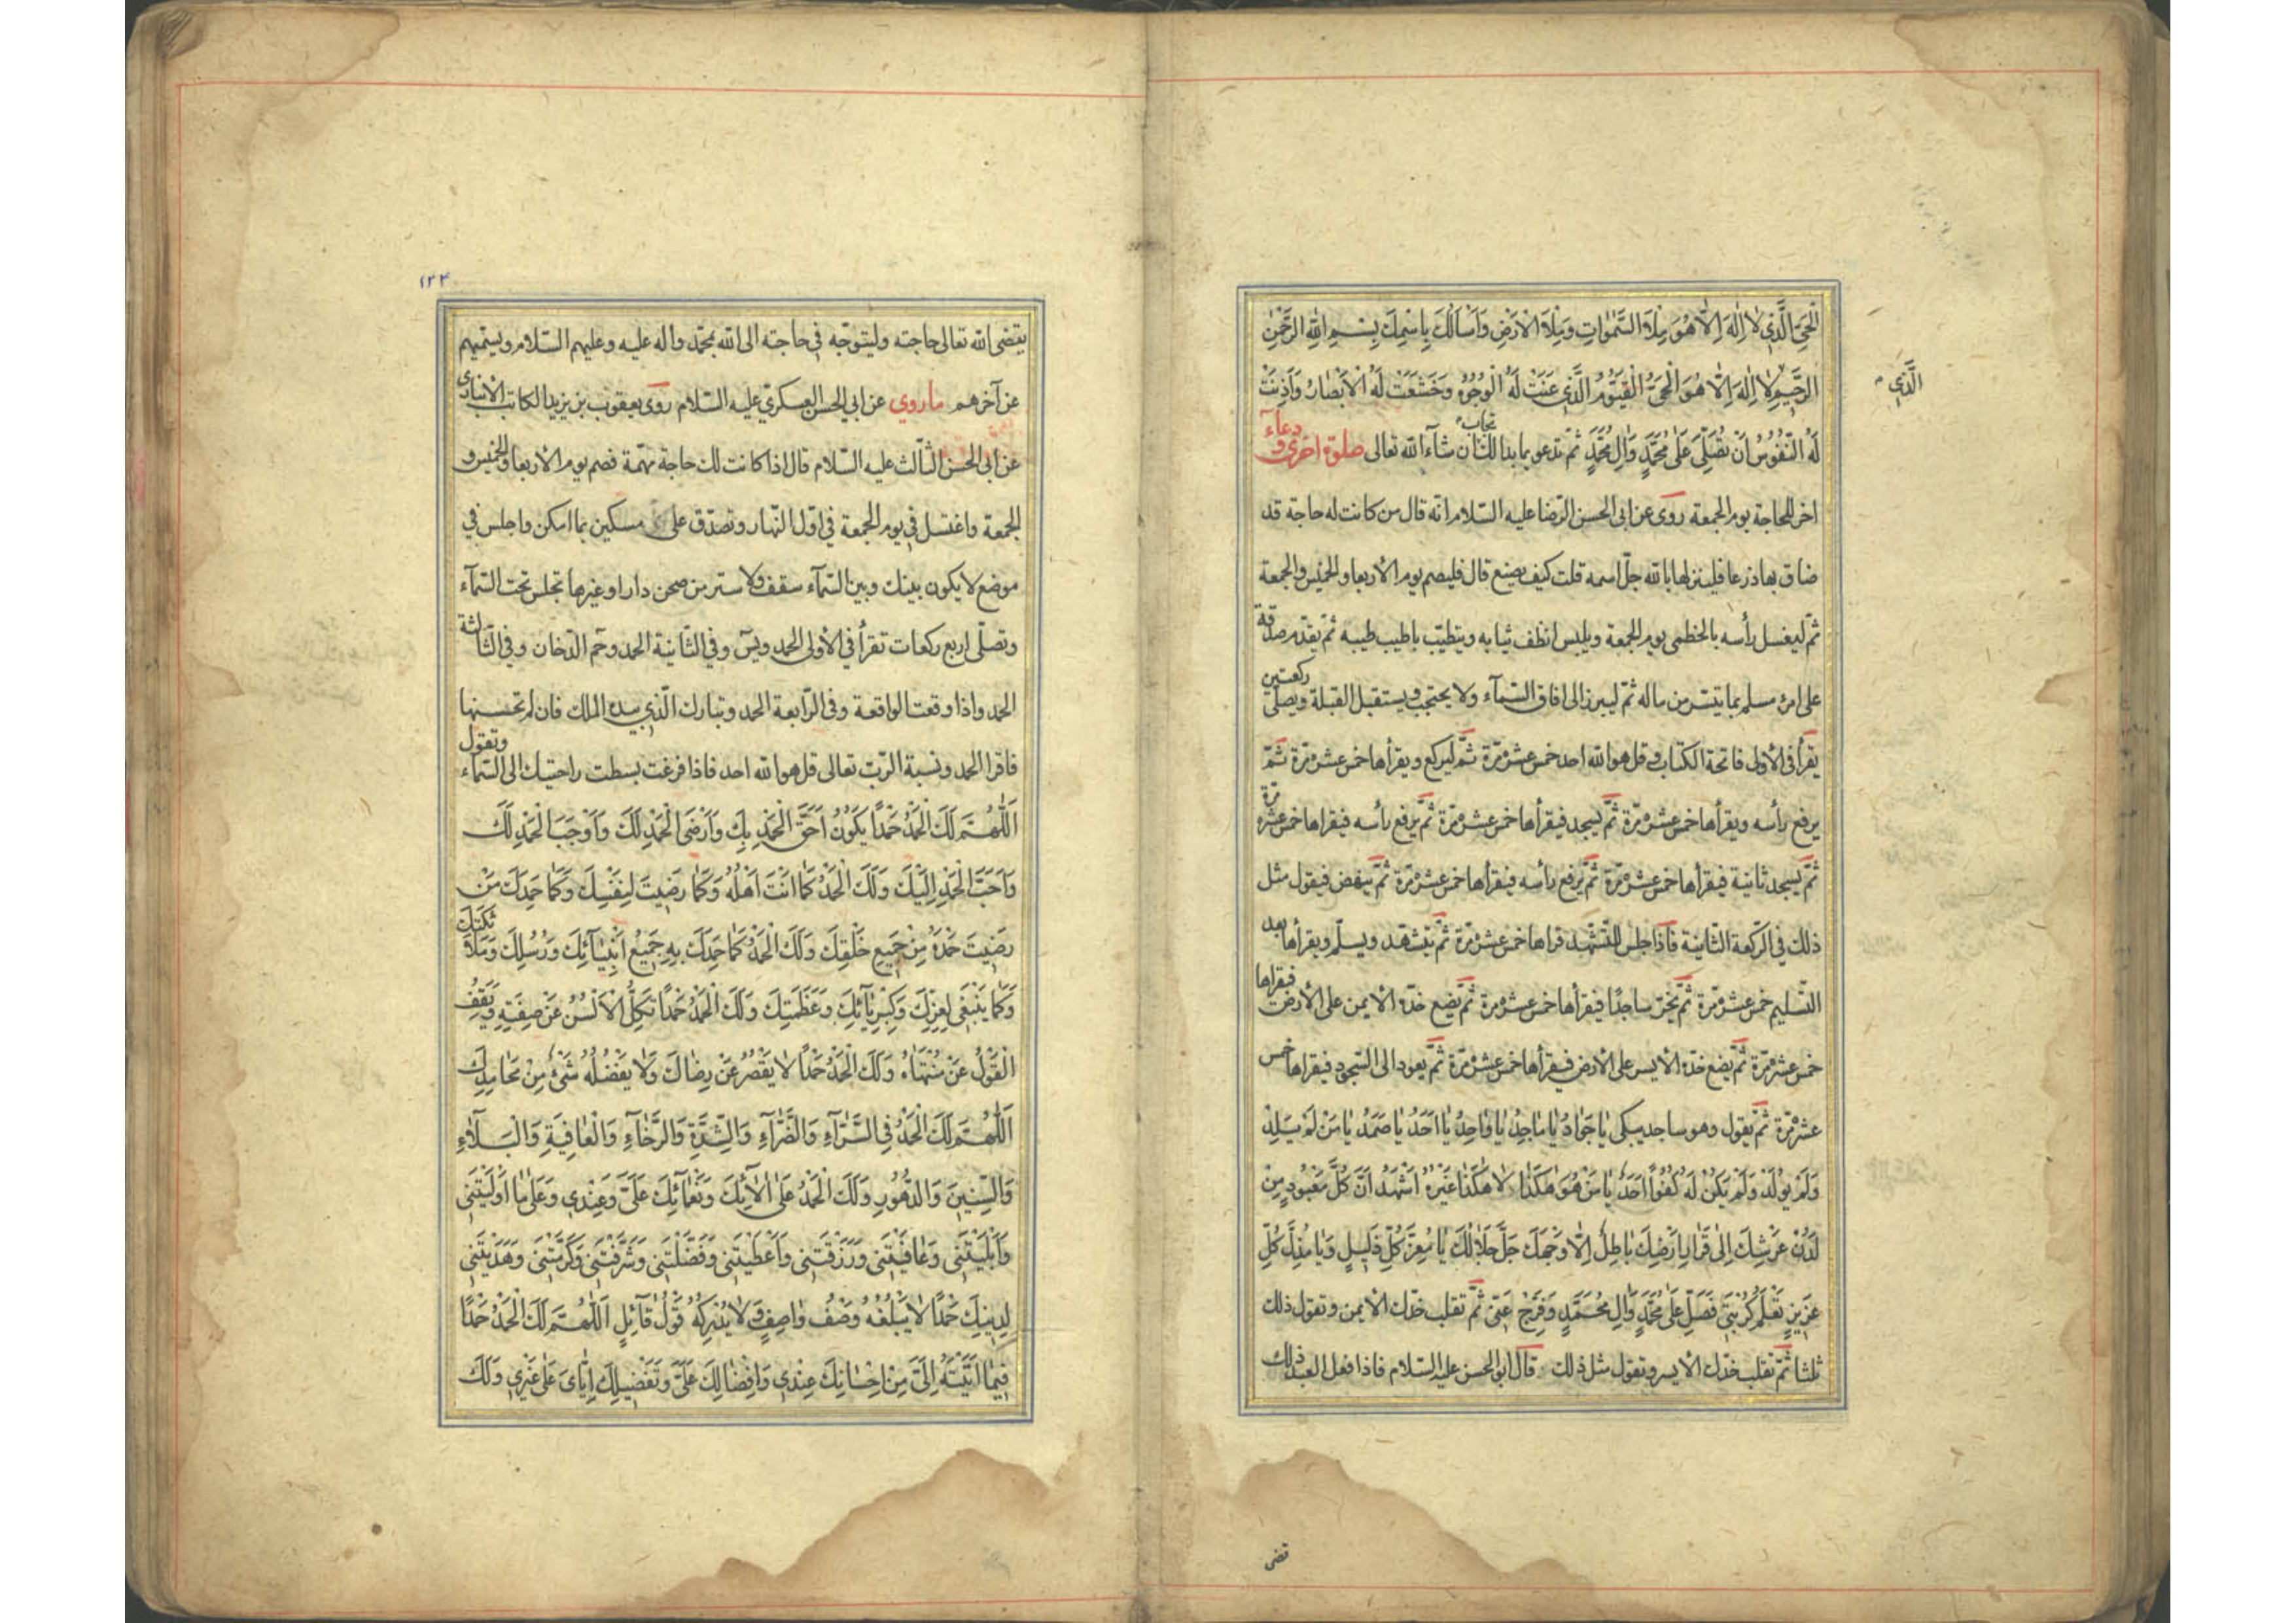 الْحَيُّ الَّذِي لٰا اِلٰهَ اِلّٰا هُوَ مِلْاَ السَّمٰوٰاتِ وَمِلْاَ الْاَرْضِ وَاَسْاَلُكَ بِاسْمِكَ بِسْمِ اللّٰهِ الرَّحْمٰنِ
الَّذِي
الرَّحِيْمِ لٰا اِلٰهَ اِلّٰا هُوَ الْحَيُّ الْقَيُّوْمُ الَّذِي عَنَتْ لَهُ الْوُجُوْهُ وَخَشَعَتْ لَهُ الْاَبْصٰارُ وَاَذِنَتْ
لَهُ النُّفُوْسُ اَنْ تُصَلِّيَ عَلٰى مُحَمَّدٍ وَاٰلِ مُحَمَّدٍ ثمّ تدعو بما بدا لك تجاب ان شآء الله تعالى صلوة اخرى و دعاء
اخر للحاجة يوم الجمعة روى عن ابي الحسن الرّضا عليه السّلام انّه قال من كانت له حاجة قد
ضاق بها ذرعا فلينزلها بالله جلّ اسمه قلت كيف يصنع قال فليصم يوم الأربعا والخميس والجمعة
ثمّ ليغسل رأسه بالخطمى يوم الجمعة ويلبس انظف ثيابه ويتطيّب باطيب طيبه ثمّ يقدّم صدقة
على امرئ مسلم بما يتيسّر من ماله ثمّ ليبرز الى افاق السّمآء ولا يحتجب ويستقبل القبلة ويصلّى ركعتين
يقرأ فى الأولى فاتحة الكتاب وقل هو الله احد خمس عشرة مرّة ثمّ ليركع ويقرأها خمس عشرة مرّة ثمّ
يرفع رأسه ويقرأها خمس عشرة مرّة ثمّ يسجد فيقرأها خمس عشرة مرّة ثمّ يرفع رأسه فيقراها خمس عشرة مرّة
ثمّ يسجد ثانية فيقرأها خمس عشرة مرّة ثمّ يرفع رأسه فيقرأها خمس عشرة مرّة ثمّ ينهض فيقول مثل
ذلك في الرّكعة الثّانية فاذا جلس للتّشهّد قراها خمس عشرة مرّة ثمّ يتشهّد ويسلّم ويقرأها بعد
التّسليم خمس عشرة مرّة ثمّ يخرّ ساجدًا فيقرأها خمس عشرة مرة ثمّ يضع خدّه الأيمن على الأرض فيقراها
خمس عشرة مرّة ثمّ يضع خدّه الأيسر على الأرض فيقرأها خمس عشرة مرّة ثمّ يعود الى السّجود فيقراها خمس
عشرة مرّة ثمّ يقول وهو ساجد يبكى يٰا جَوٰادُ يٰا مٰاجِدُ يٰا وٰاحِدُ يٰا اَحَدُ يٰا صَمَدُ يٰا مَنْ لَمْ يَلِدْ
وَلَمْ يُوْلَدْ وَلَمْ يَكُنْ لَهُ كُفُوًا اَحَدٌ يٰا مَنْ هُوَ هٰكَذٰا لٰا هٰكَذٰا غَيْرُهُ اَشْهَدُ اَنَّ كُلَّ مَعْبُوْدٍ مِنْ
لَدُنْ عَرْشِكَ اِلٰى قَرٰارِ اَرْضِكَ بٰاطِلٌ اِلّٰا وَجْهَكَ جَلَّ جَلٰالُكَ يٰا مُعِزَّ كُلِّ ذَلِيْلٍ وَيٰا مُذِلَّ كُلِّ
عَزِيْزٍ تَعْلَمُ كُرْبَتِي فَصَلِّ عَلٰى مُحَمَّدٍ وَاٰلِ مُحَمَّدٍ وَفَرِّجْ عَنّي ثمّ تقلب خدّك الأيمن وتقول ذلك
ثلثا ثمّ تقلب خدّك الأيسر وتقول مثل ذلك قال ابو الحسن عليه السّلام فاذا فعل العبد ذلك
۱۲۴
يقضى الله تعالى حاجته وليتوجّه في حاجته الى الله بمحمّد واله عليه وعليهم السّلام ويسمّيهم
عن آخرهم ما روي عن ابي الحسن العسكريّ عليه السّلام روى يعقوب بن يزيد الكاتب الأنبارى
عن ابى الحسن الثّالث عليه السّلام قال اذا كانت لك حاجة مهمّة فصم يوم الأربعا والخميس و
الجمعة واغتسل في يوم الجمعة في اوّل النّهار وتصدّق على مسكين بما امكن واجلس في
موضع لا يكون بينك وبين السّمآء سقف ولا ستر من صحن دار او غيرها تجلس تحت السّمآء
وتصلّى اربع ركعات تقرأ في الأولى الحمد ويسۤ وفي الثّانية الحمد وحم الدّخان وفي الثّالثة
الحمد واذا وقعت الواقعة وفى الرّابعة الحمد وتبارك الّذي بيده الملك فان لم تحسنها
فاقرا الحمد ونسبة الرّبّ تعالى قل هو الله احد فاذا فرغت بسطت راحتيك الى السّمآء وتقول
اَللّٰهُمَّ لَكَ الْحَمْدُ حَمْدًا يَكُوْنُ اَحَقَّ الْحَمْدِ بِكَ وَاَرْضَى الْحَمْدِ لَكَ وَاَوْجَبَ الْحَمْدِ لَكَ
وَاَحَبَّ الْحَمْدِ اِلَيْكَ وَلَكَ الْحَمْدُ كَمٰا اَنْتَ اَهْلُهُ وَكَمٰا رَضِيْتَ لِنَفْسِكَ وَكَمٰا حَمِدَكَ مَنْ
رَضِيْتَ حَمْدَهُ مِنْ جَمِيْعِ خَلْقِكَ وَلَكَ الْحَمْدُ كَمٰا حَمِدَكَ بِهِ جَمِيْعُ اَنْبِيٰآئِكَ وَرُسُلِكَ وَمَلٰآئِكَتِكَ
وَكَمٰا يَنْبَغِي لِعِزِّكَ وَكِبْرِيٰآئِكَ وَعَظَمَتِكَ وَلَكَ الْحَمْدُ حَمْدًا تَكِلُّ الْاَلْسُنُ عَنْ صِفَتِهِ وَيَقِفُ
الْقَوْلُ عَنْ مُنْتَهٰاهُ وَلَكَ الْحَمْدُ حَمْدًا لٰا يَقْصُرُ عَنْ رِضٰاكَ وَلٰا يَفْضُلُهُ شَيْءٌ مِنْ مَحٰامِدِكَ
اَللّٰهُمَّ لَكَ الْحَمْدُ فِي السَّرّٰآءِ وَالضَّرّٰآءِ وَالشِّدَّةِ وَالرَّخٰآءِ وَالْعٰافِيَةِ وَالْبَلٰآءِ
وَالسِّنِيْنَ وَالدُّهُوْرِ وَلَكَ الْحَمْدُ عَلٰى اٰلٰآئِكَ وَنَعْمٰآئِكَ عَلَيَّ وَعِنْدِي وَعَلٰى مٰا اَوْلَيْتَنِي
وَاَبْلَيْتَنِي وَعٰافَيْتَنِي وَرَزَقْتَنِي وَاَعْطَيْتَنِي وَفَضَّلْتَنِي وَشَرَّفْتَنِي وَكَرَّمْتَنِي وَهَدَيْتَنِي
لِدِيْنِكَ حَمْدًا لٰا يَبْلُغُهُ وَصْفُ وٰاصِفٍ وَلٰا يُدْرِكُهُ قَوْلُ قٰآئِلٍ اَللّٰهُمَّ لَكَ الْحَمْدُ حَمْدًا
فِيْمٰا اٰتَيْتَهُ اِلَيَّ مِنْ اِحْسٰانِكَ عِنْدِي وَاِفْضٰالِكَ عَلَيَّ وَتَفْضِيْلِكَ اِيّٰايَ عَلٰى غَيْرِي وَلَكَ